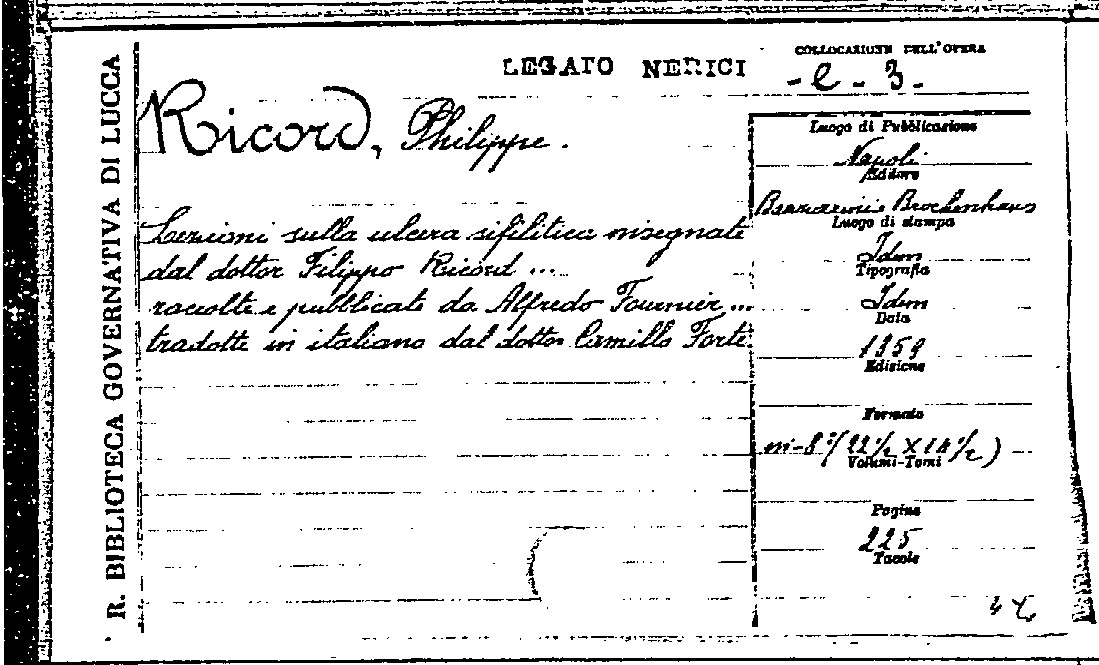 R. BIBLIOTECA GOVERNATIVA DI LUCCA
LEGATO NERICI
COLLOCAZIONE DELL'OPERA
- e - 3 -
Ricord, Philippe.
Lezioni sulla ulcera sifilitica insegnate
dal dottor Filippo Ricord ...
raccolte e pubblicate da Alfredo Fournier ...
tradotte in italiano dal dottor Camillo Forte
Luogo di Pubblicazione
Napoli
Editore
Brockenhaus
Luogo di stampa
Idem
Tipografia
Idem
Data
1859
Edizione
Formato
in-8° (22 1/2 X 14 1/2)
Volumi-Tomi
Pagine
225
Tavole